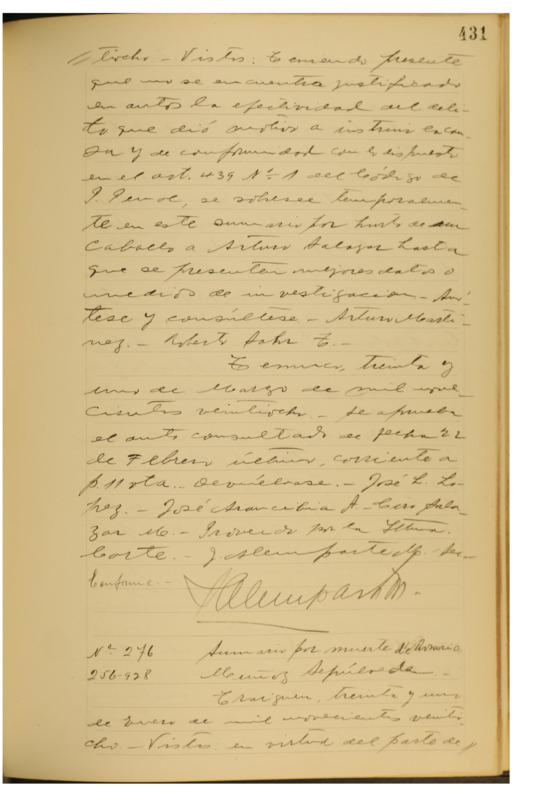 431
tiocho - Vistos: Teniendo presente
que no se encuentra justificado
en autos la efectividad del deli-
to que dió motivo a instruir la cau-
sa y de conformidad con lo dispuesto
en el art. 439 Nº 1 del Código de
P. Penal, se sobresee temporalmen-
te en este sumario por hurto de un
caballo a Arturo Salazar hasta
que se presenten mejores datos o
medios de investigacion - Anó-
tese y consúltese - Arturo Martí-
nez. - Roberto Sahr T. -
Temuco, treinta y
uno de Marzo de mil nove-
cientos veintiocho - Se aprueba
el auto consultado de fecha 22
de Febrero último, corriente a
f. 11 vta. Devuélvase. - José L. Lo-
pez. - José Arancibia A - Ciro Sala-
zar M. - Proveido por la Iltma.
Corte. - J. Alemparte Sec-
Conforme. -
Nº 276 Sumario por muerte de Rosario
256-928 Muñoz Sepúlveda -
Traiguen, treinta y uno
de Enero de mil novecientos veintio
cho - Vistos: en virtud del parte de